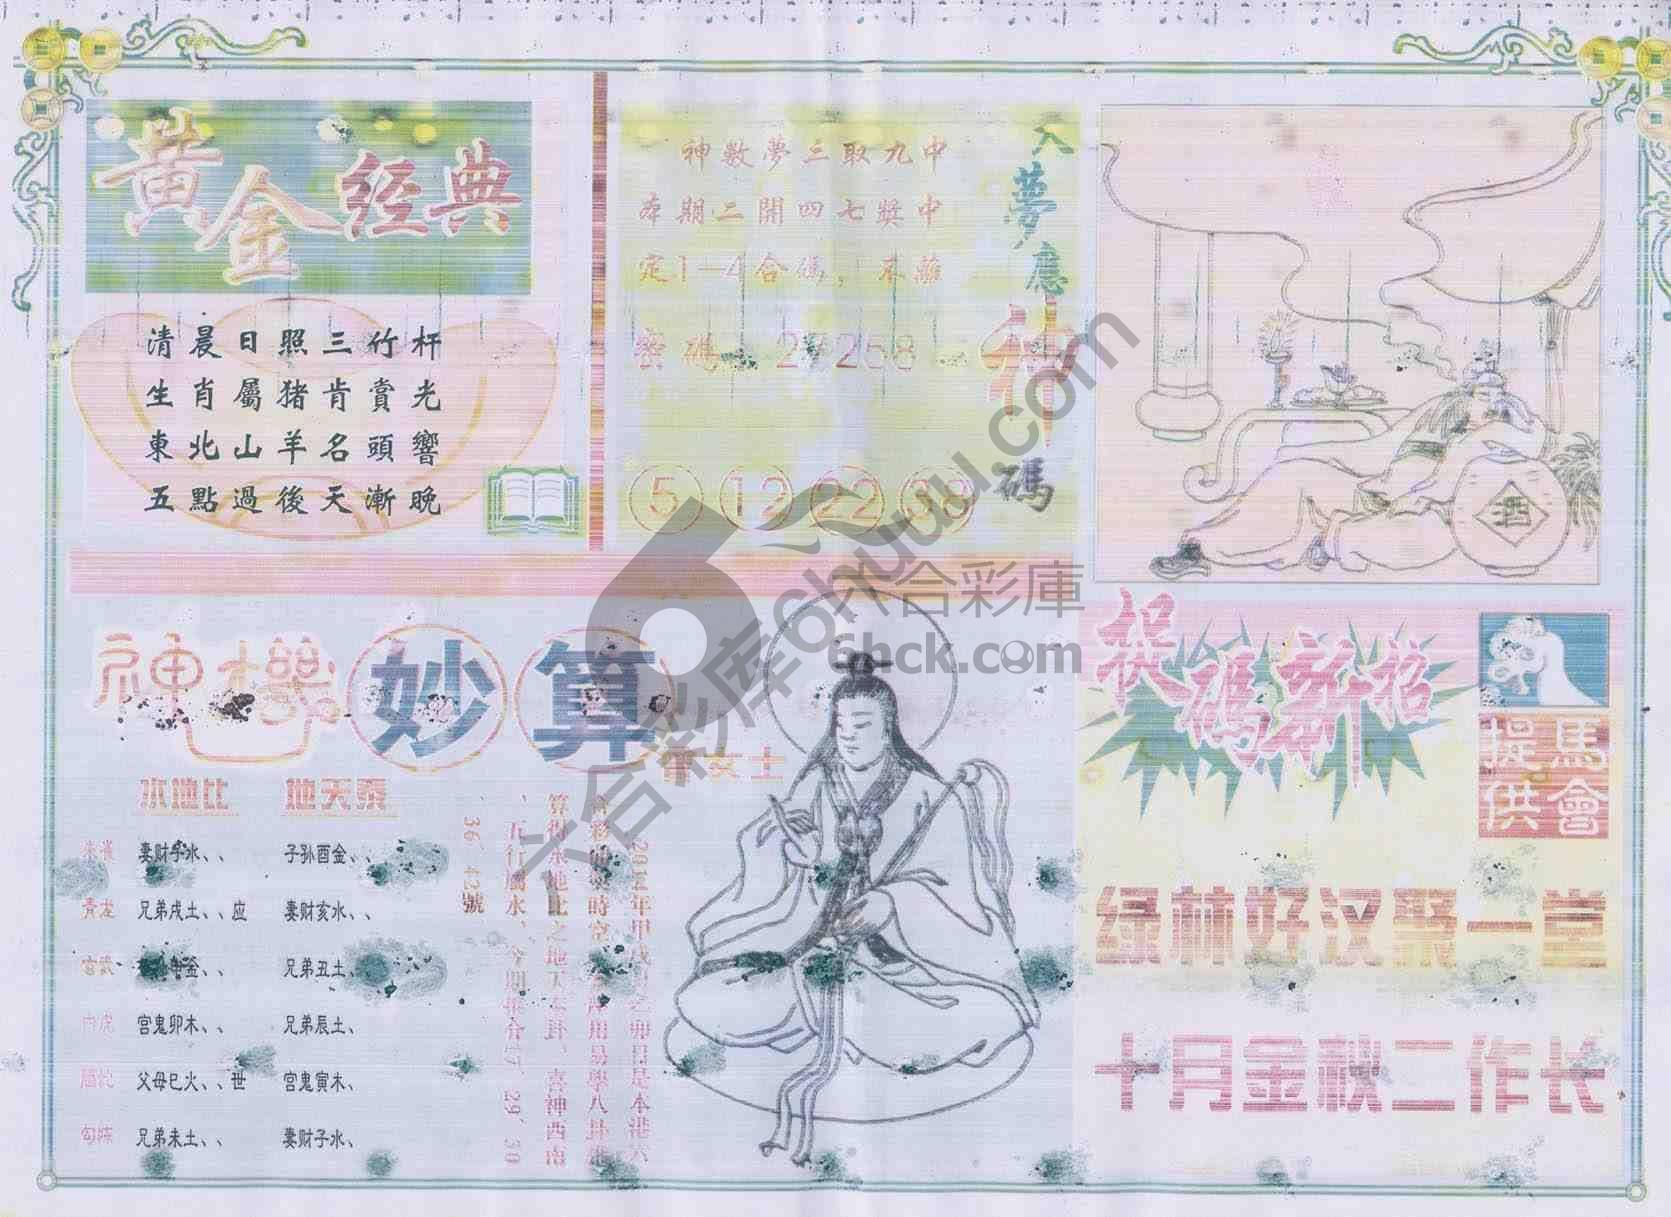 黄金经典
清晨日照三竹杆
生肖屬猪肯賞光
東北山羊名頭響
五點過後天漸晚
入夢應神碼
神數夢三取九中
本期二開四七獎中
定1—4合碼，不離
密碼：27268
5 12 22 38
酒
神機妙算
女士
水地比 地天泰
朱雀 妻财子水、、 子孙酉金、、
青龙 兄弟戌土、、应 妻财亥水、、
金、、 兄弟丑土、、
白虎 宫鬼卯木、、 兄弟辰土、
父母巳火、、世 宫鬼寅木、
勾陈 兄弟未土、、 妻财子水、
算得水地比之地天泰卦，喜神西南
、五行屬水，今期推合17、29、30
、36、42號
捉碼新招
馬會提供
绿林好汉聚一堂
十月金秋二作长
六合彩库 6huuu.com
六合彩庫
6hck.com